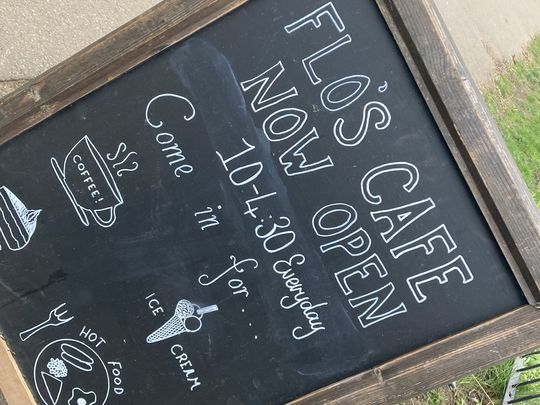 FLO'S CAFE
NOW OPEN
10-4:30 Everyday
Come in for....
COFFEE!
ICE CREAM
HOT FOOD